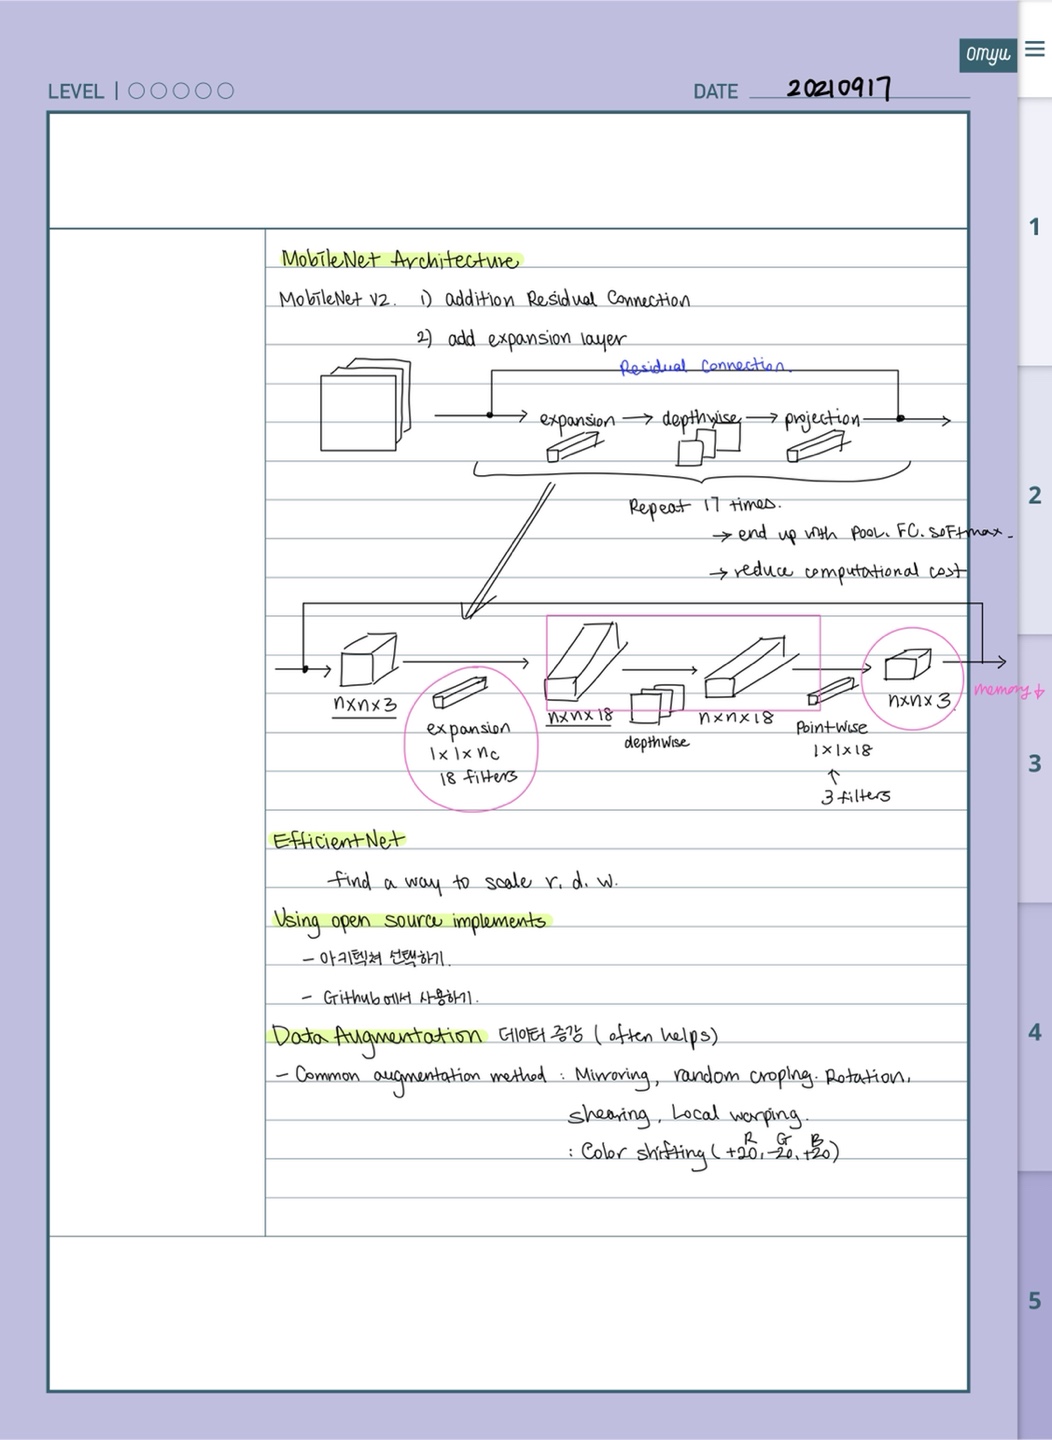 omyu
LEVEL
DATE 20210917
MobileNet Architecture
MobileNet V2. 1) addition Residual Connection
2) add expansion layer
Residual Connection.
expansion → depthwise → projection
Repeat 17 times.
→ end up with POOL. FC. SOFtmax.
→ reduce computational cost
n×n×3
expansion
1×1×nc
18 filters
n×n×18
depthwise
n×n×18
Pointwise
1×1×18
↑
3 filters
n×n×3
memory↓
EfficientNet
find a way to scale r. d. w.
Using open source implements
- 아키텍쳐 선택하기.
- Github에서 사용하기.
Data Augmentation 데이터 증강 (often helps)
- Common augmentation method : Mirroring, random croping. Rotation,
shearing, Local warping.
R G B
: Color shifting (+20, -20, +20)
1
2
3
4
5